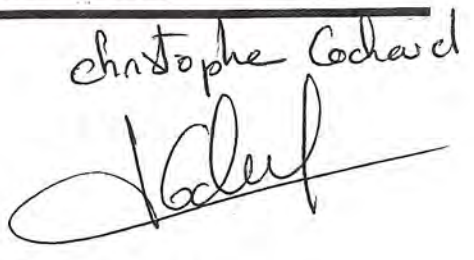 christophe Cochard